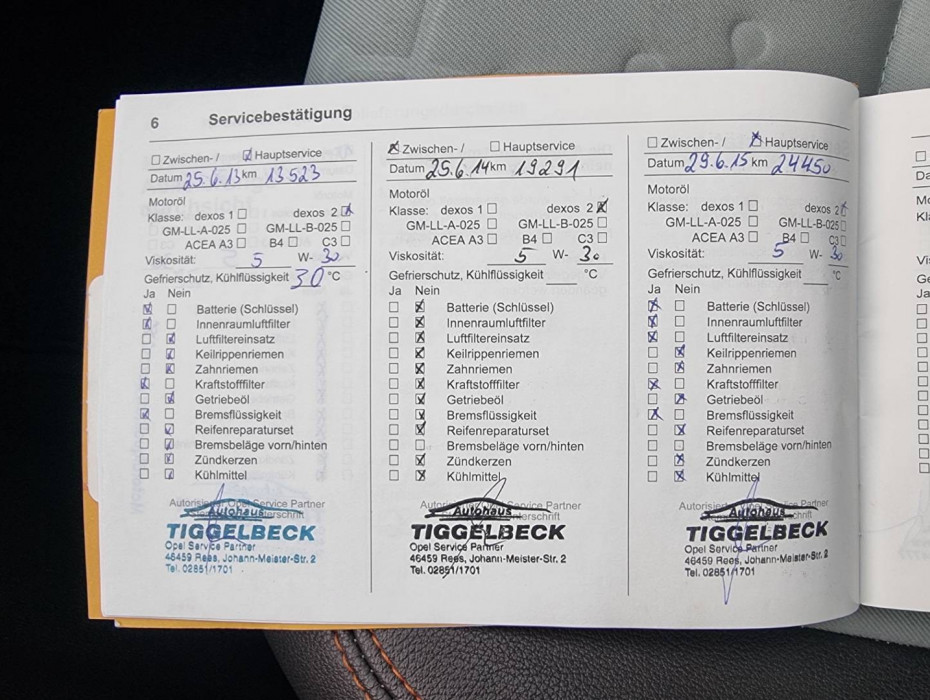 6 Servicebestätigung
☐ Zwischen- / ☒ Hauptservice
Datum 25.6.13 km 13523
Motoröl
Klasse: dexos 1 ☐ dexos 2 ☒
☐ GM-LL-A-025 ☐ GM-LL-B-025 ☐
ACEA A3 ☐ B4 ☐ C3 ☐
Viskosität: 5 W- 30
Gefrierschutz, Kühlflüssigkeit 30 °C
Ja Nein
☒ ☐ Batterie (Schlüssel)
☒ ☐ Innenraumluftfilter
☐ ☒ Luftfiltereinsatz
☐ ☒ Keilrippenriemen
☐ ☒ Zahnriemen
☒ ☐ Kraftstofffilter
☐ ☒ Getriebeöl
☒ ☐ Bremsflüssigkeit
☐ ☒ Reifenreparaturset
☐ ☒ Bremsbeläge vorn/hinten
☐ ☒ Zündkerzen
☐ ☒ Kühlmittel
Service Partner
Autohaus
TIGGELBECK
Opel Service Partner
46459 Rees, Johann-Meister-Str. 2
Tel. 02851/1701
☒ Zwischen- / ☐ Hauptservice
Datum 25.6.14 km 19291
Motoröl
Klasse: dexos 1 ☐ dexos 2 ☒
GM-LL-A-025 ☐ GM-LL-B-025 ☐
ACEA A3 ☐ B4 ☐ C3 ☐
Viskosität: 5 W- 30
Gefrierschutz, Kühlflüssigkeit °C
Ja Nein
☐ ☒ Batterie (Schlüssel)
☐ ☒ Innenraumluftfilter
☐ ☒ Luftfiltereinsatz
☐ ☒ Keilrippenriemen
☐ ☒ Zahnriemen
☐ ☒ Kraftstofffilter
☐ ☒ Getriebeöl
☐ ☒ Bremsflüssigkeit
☐ ☒ Reifenreparaturset
☐ ☐ Bremsbeläge vorn/hinten
☐ ☒ Zündkerzen
☐ ☒ Kühlmittel
Service Partner
Autohaus
TIGGELBECK
Opel Service Partner
46459 Rees, Johann-Meister-Str. 2
Tel. 02851/1701
☐ Zwischen- / ☒ Hauptservice
Datum 29.6.15 km 24450
Motoröl
Klasse: dexos 1 ☐ dexos 2 ☒
GM-LL-A-025 ☐ GM-LL-B-025 ☐
ACEA A3 ☐ B4 ☐ C3 ☐
Viskosität: 5 W- 30
Gefrierschutz, Kühlflüssigkeit °C
Ja Nein
☒ ☐ Batterie (Schlüssel)
☒ ☐ Innenraumluftfilter
☒ ☐ Luftfiltereinsatz
☐ ☒ Keilrippenriemen
☐ ☒ Zahnriemen
☒ ☐ Kraftstofffilter
☐ ☒ Getriebeöl
☒ ☐ Bremsflüssigkeit
☐ ☒ Reifenreparaturset
☐ ☐ Bremsbeläge vorn/hinten
☐ ☒ Zündkerzen
☐ ☒ Kühlmittel
Service Partner
Autohaus
TIGGELBECK
Opel Service Partner
46459 Rees, Johann-Meister-Str. 2
Tel. 02851/1701